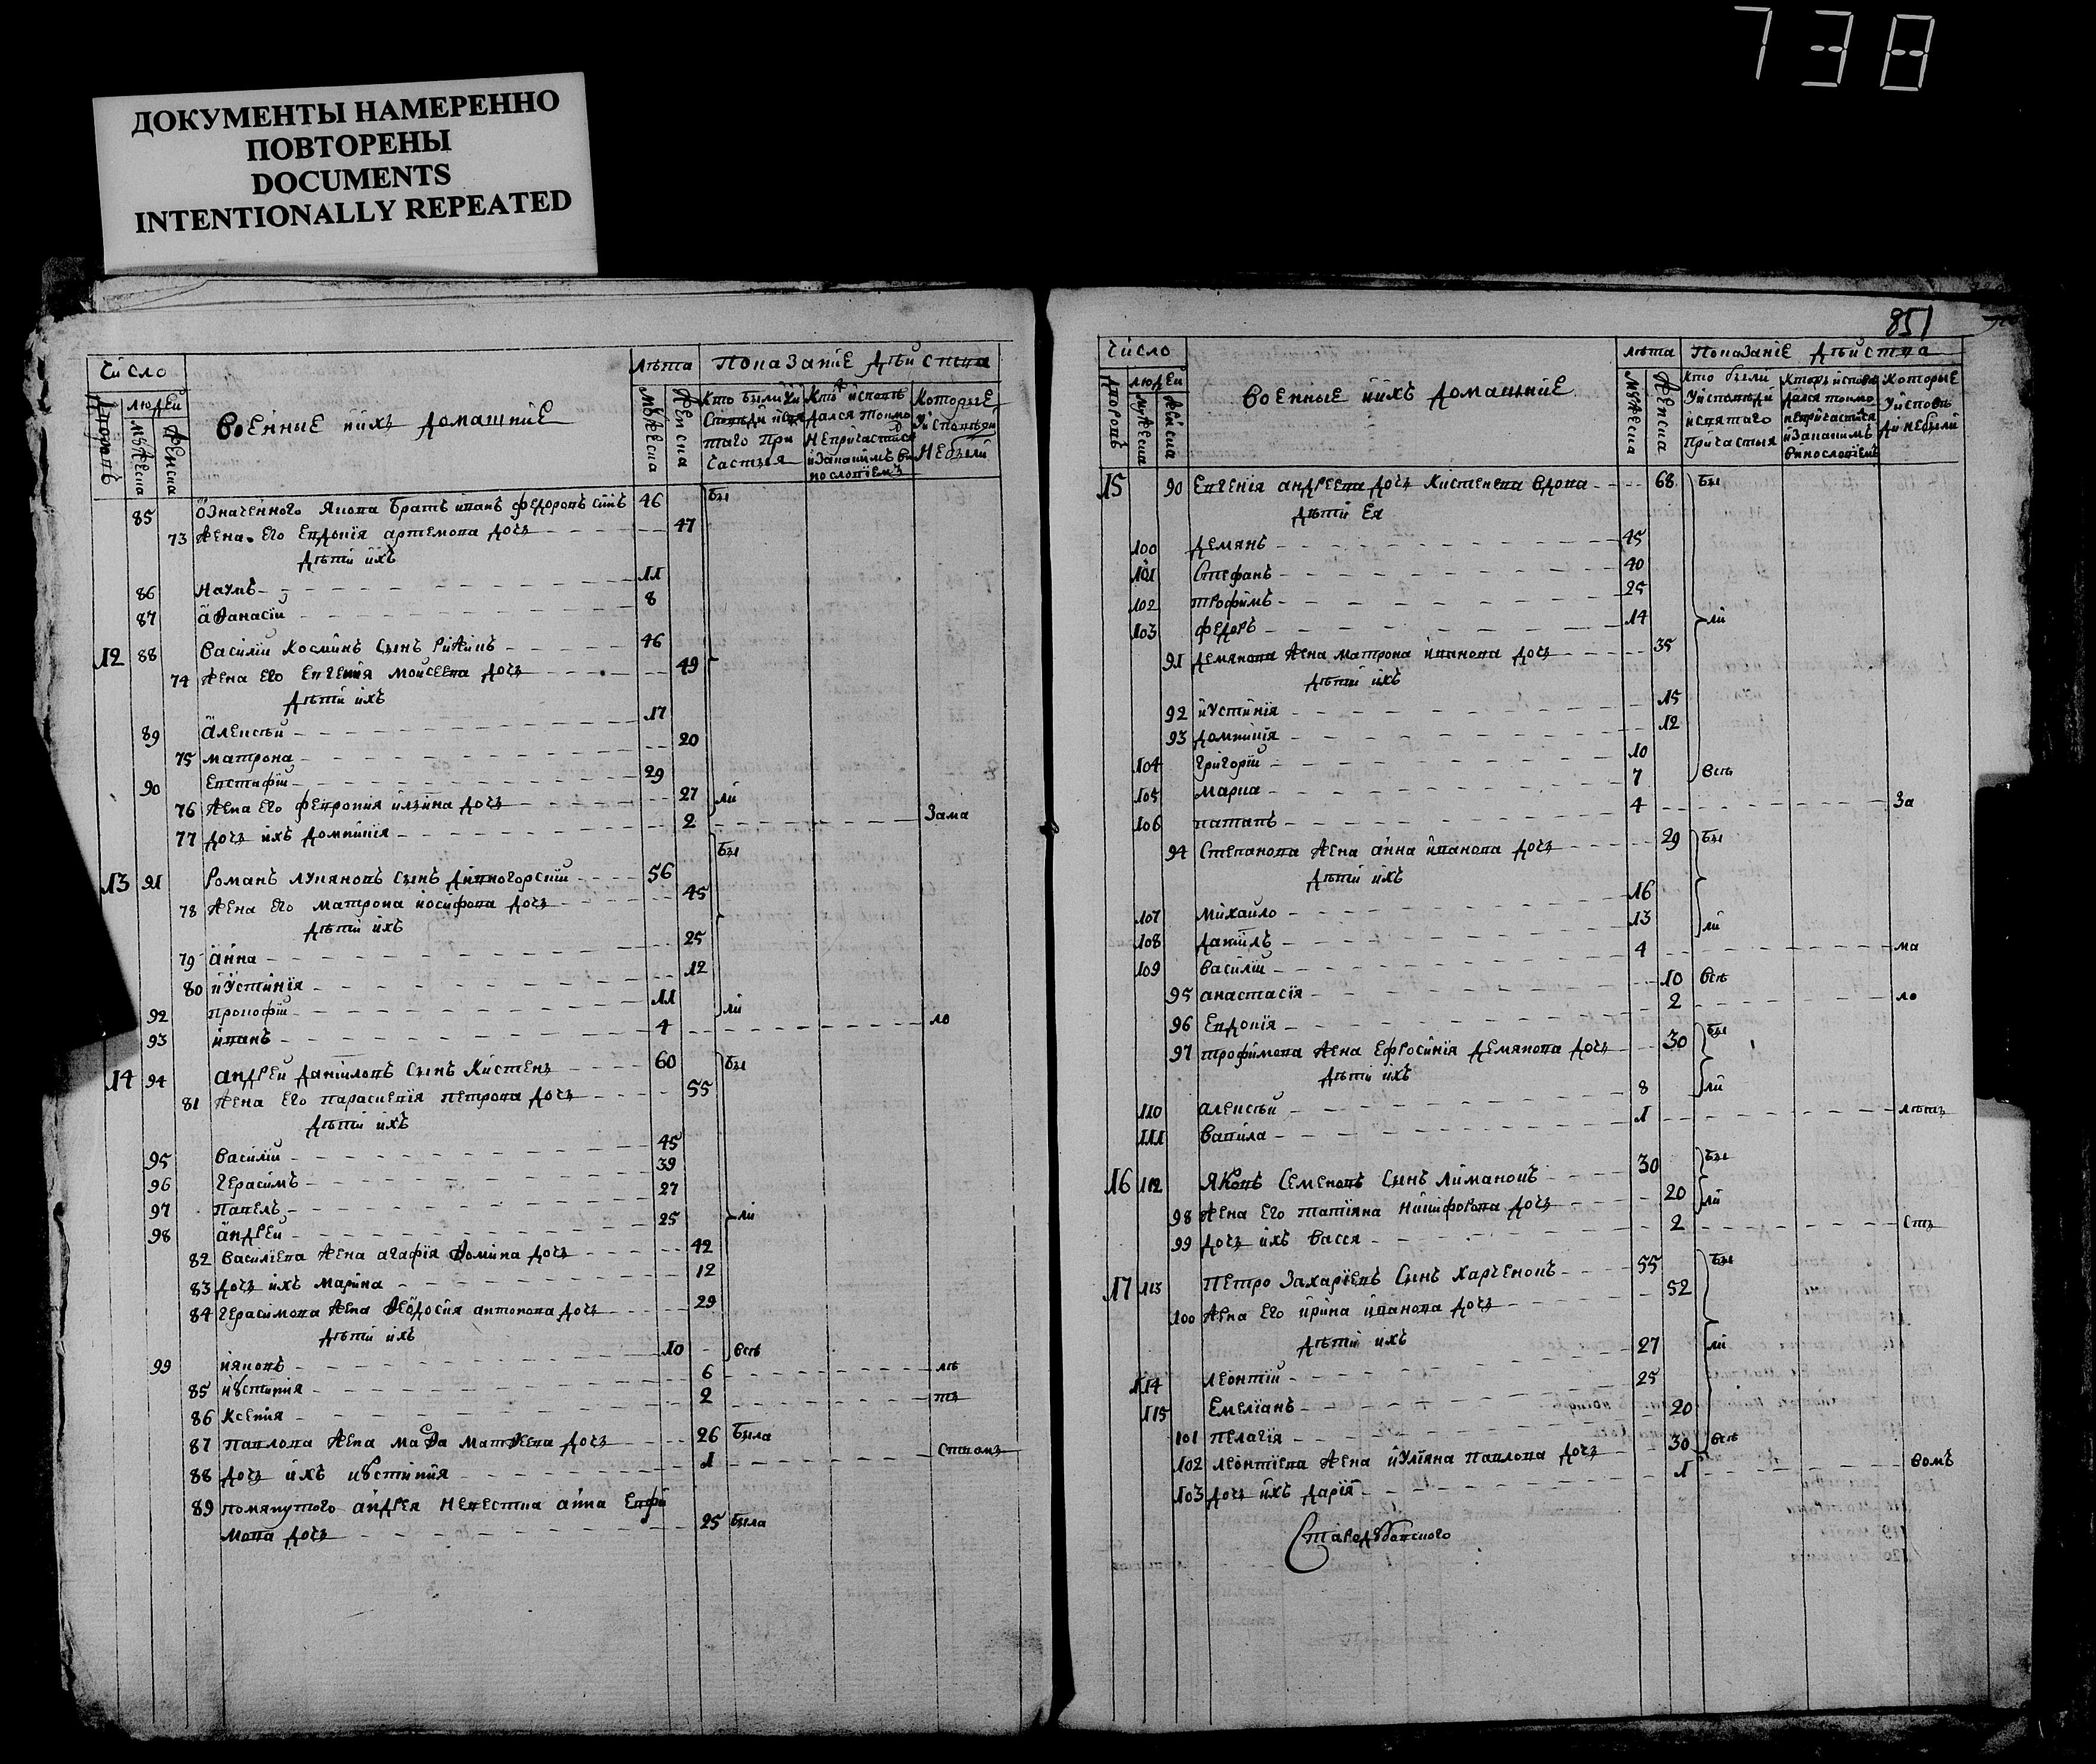 738
ДОКУМЕНТЫ НАМЕРЕННО
ПОВТОРЕНЫ
DOCUMENTS
INTENTIONALLY REPEATED
Число Лѣта Показание дѣйства
дворовъ людей мужеска женска Военные и ихъ домашние мужеска женска
Кто были у исповѣди и святаго причастья
Кто исповѣдался токмо не причастился и за какимъ винословiемъ
Которые у исповѣди не были
85 означенного Якова братъ иванъ федоровъ сынъ 46 бы
73 жена его Евдокiя артемова дочь 47
дѣти ихъ
86 Наумъ 11
87 аѳанасiй 8
12 88 Василiй Косминъ сынъ 46
74 жена его Евгения Моисеева дочь 49
дѣти ихъ
89 алексѣй 17
75 матрона 20
90 Евстафiй 29
76 жена его феврония илина дочь 27 ли
77 дочь ихъ домникiя 2 Зама
бы
13 91 Романъ лукяновъ сынъ 56
78 жена его матрона иосифова дочь 45
дѣти ихъ
79 анна 25
80 иустинiя 12
92 прокофiй 11 ли
93 иванъ 4 ло
14 94 андрей данiиловъ сынъ Кистень 60 бы
81 жена его параскевiя петрова дочь 55
дѣти ихъ
95 василiй 45
96 герасимъ 39
97 павелъ 27
98 андрей 25 ли
82 василiева жена агафiя ѳомина дочь 42
83 дочь ихъ марина 12
84 герасимова жена ѳеодосия антонова дочь 29
дѣти ихъ
99 ияковъ 10 всѣ
85 иустиния 6 лѣ
86 Ксения 2 тъ
87 павлова жена матѳеева дочь 26 была
88 дочь ихъ иустиния 1 ством
89 помянутого андрея невестка анна Евфи
мова дочь 25 была
851
Число Лѣта Показанiе дѣйства
дворовъ людей мужеска женска Военные и ихъ домашние мужеска женска
Кто были у исповѣди и святаго причастья
Кто исповѣдался токмо не причастился и за какимъ винословiемъ
Которые у исповѣди не были
15 90 Евгенiя андреева дочь Кистенева вдова 68 бы
дѣти ея
100 демянъ 45
101 Стефанъ 40
102 трофимъ 25
103 федоръ 14 ли
91 демянова жена матрона иванова дочь 35
дѣти ихъ
92 иустинiя 15
93 домникiя 12
104 григорiй 10
105 марка 7 всѣ
106 патапъ 4 За
94 Степанова жена анна иванова дочь 29 бы
дѣти ихъ
107 михайло 16
108 данiилъ 13 ли
109 василiй 4 ма
95 анастасiя 10 всѣ
96 Евдокiя 2 ло
97 трофимова жена ефросинiя демянова дочь 30 бы
дѣти ихъ
110 алексѣй 8 ли
111 вавила 1 лѣт
16 112 Яковъ Семеновъ сынъ Лиманскъ 30 бы
98 жена его татiяна никифорова дочь 20 ли
99 дочь ихъ васся 2 ст
17 113 Петро Захарiевъ сынъ Харченокъ 55 бы
100 жена его ирина иванова дочь 52
дѣти ихъ
114 леонтiй 27 ли
115 Емелiанъ 25
101 пелагiя 20
102 леонтiева жена иулiяна павлова дочь 30 всѣ
103 дочь ихъ дарiя 1 вомъ
Стародубовского